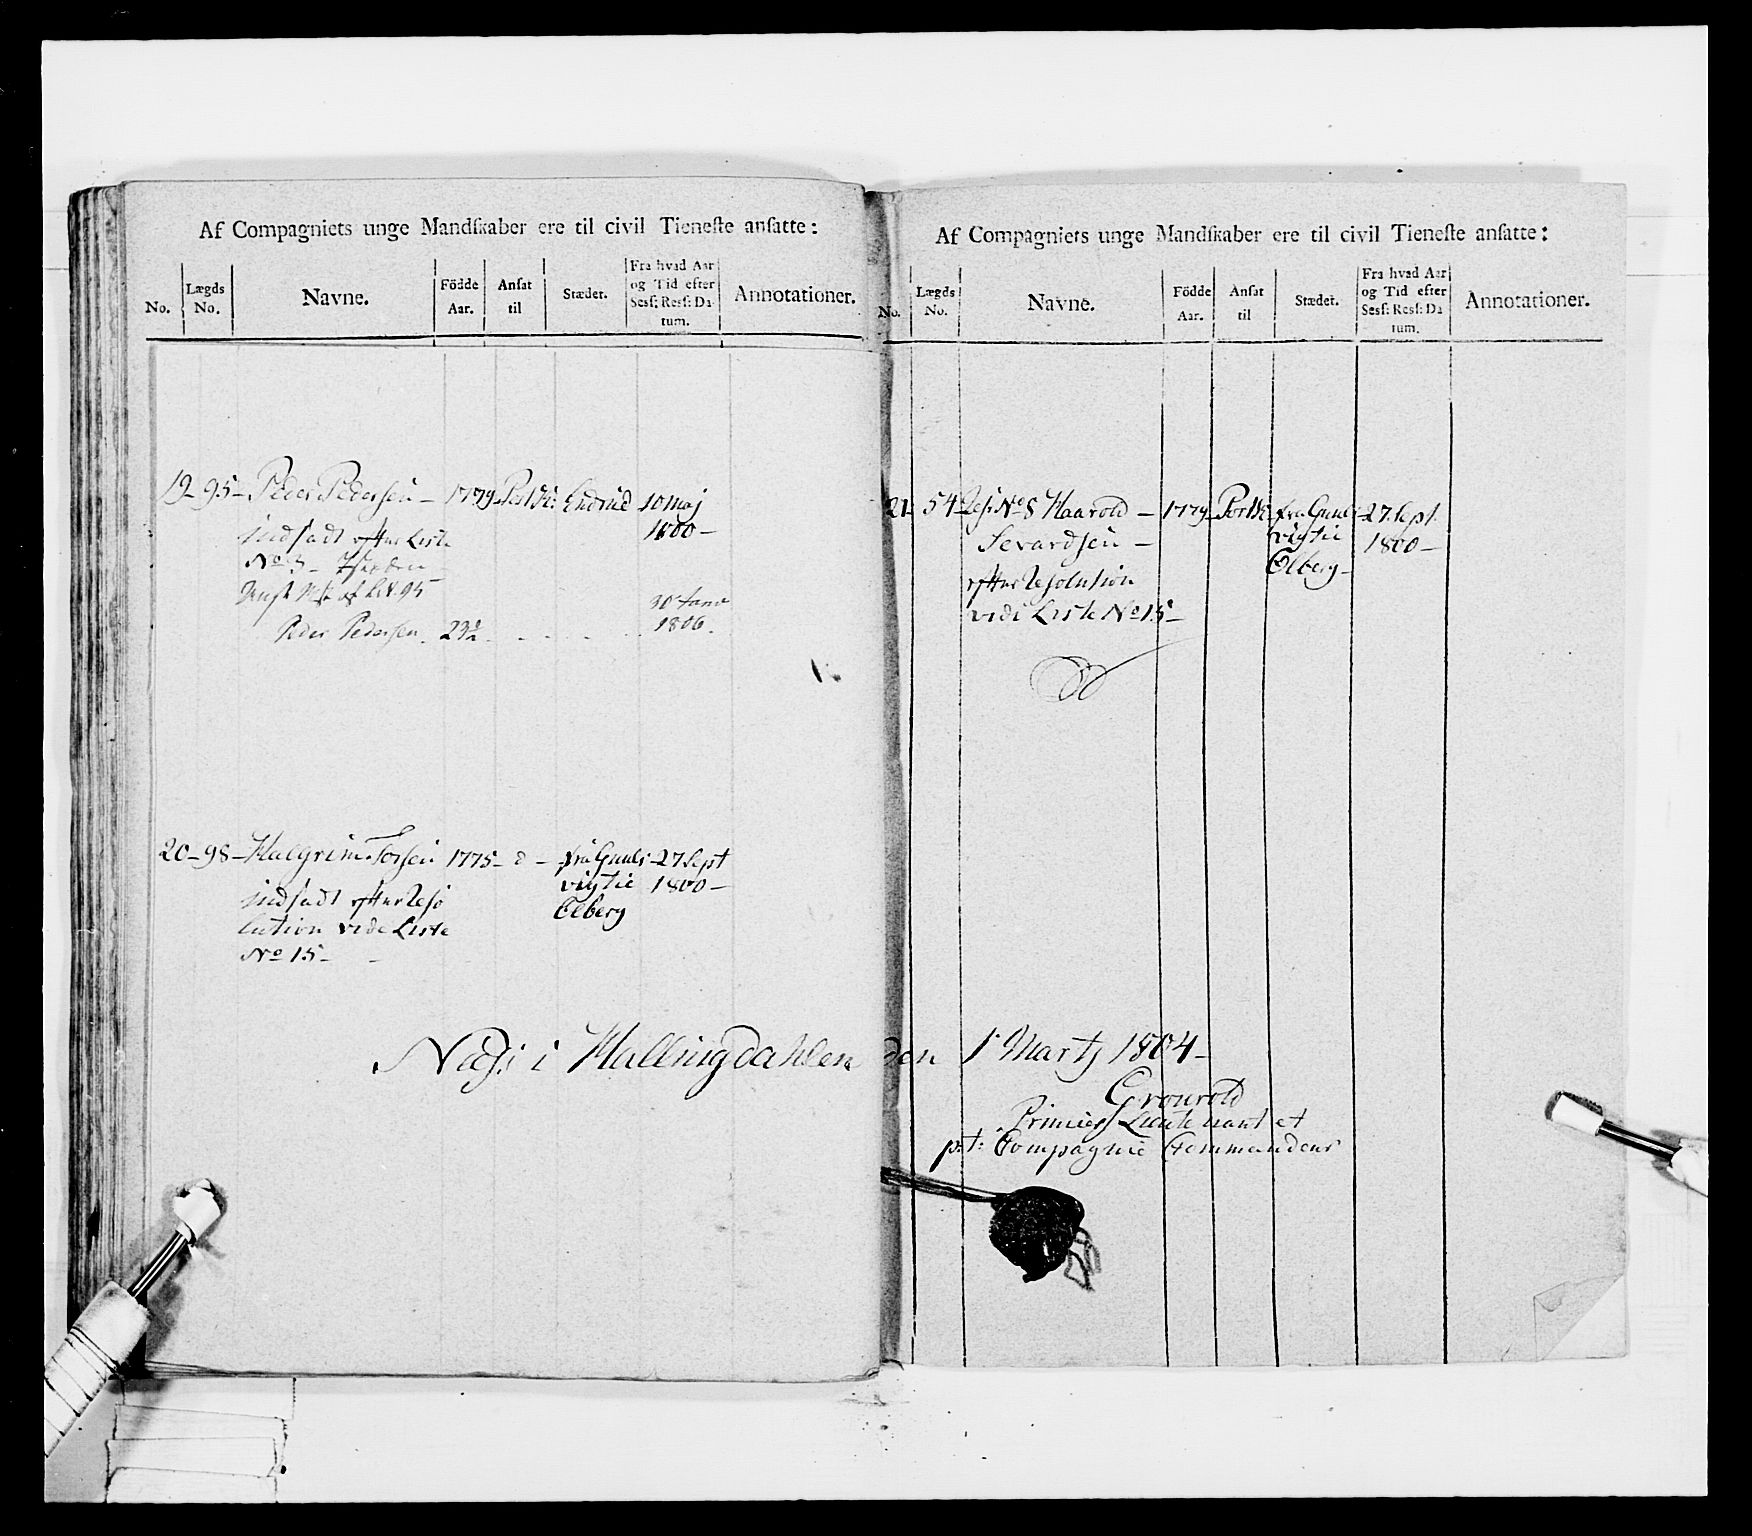 Af Compagniets unge Mandskaber ere til civil Tieneste ansatte:
No.
Lægds No.
Navne.
Födde Aar.
Ansat til
Stædet.
Fra hvad Aar og Tid efter Sess: Ress: Datum.
Annotationer.
19 - 95 - Peder Pedersen - 1779 - Endrud 10 Maj
indsadt efter Liste 1800 -
No 3 -
af 95
30 Janv
Peder Pedersen 23½ - - - - 1806.
20 - 98 - Halgrim Torsen 1775 - d - fra Guuls 27 Sept
indsadt efter Reso vigtie 1800 -
lution vide Liste Elberg
No 15 -
Næss i Hallingdahlen den 1 Martj 1804 -
Af Compagniets unge Mandskaber ere til civil Tieneste ansatte:
No.
Lægds No.
Navne.
Födde Aar.
Ansat til
Stædet.
Fra hvad Aar og Tid efter Sess: Ress: Da tum.
Annotationer.
21 - 54 - Res: No 8 Haarold - 1779 - fra Guuls - 27 Sept.
Sevardsen - vigtie 1800 -
efter Resolution Elberg -
vide Liste No 15 -
Gronvold
Premier Lieutenant et
p.t: Compagnie Commandeur